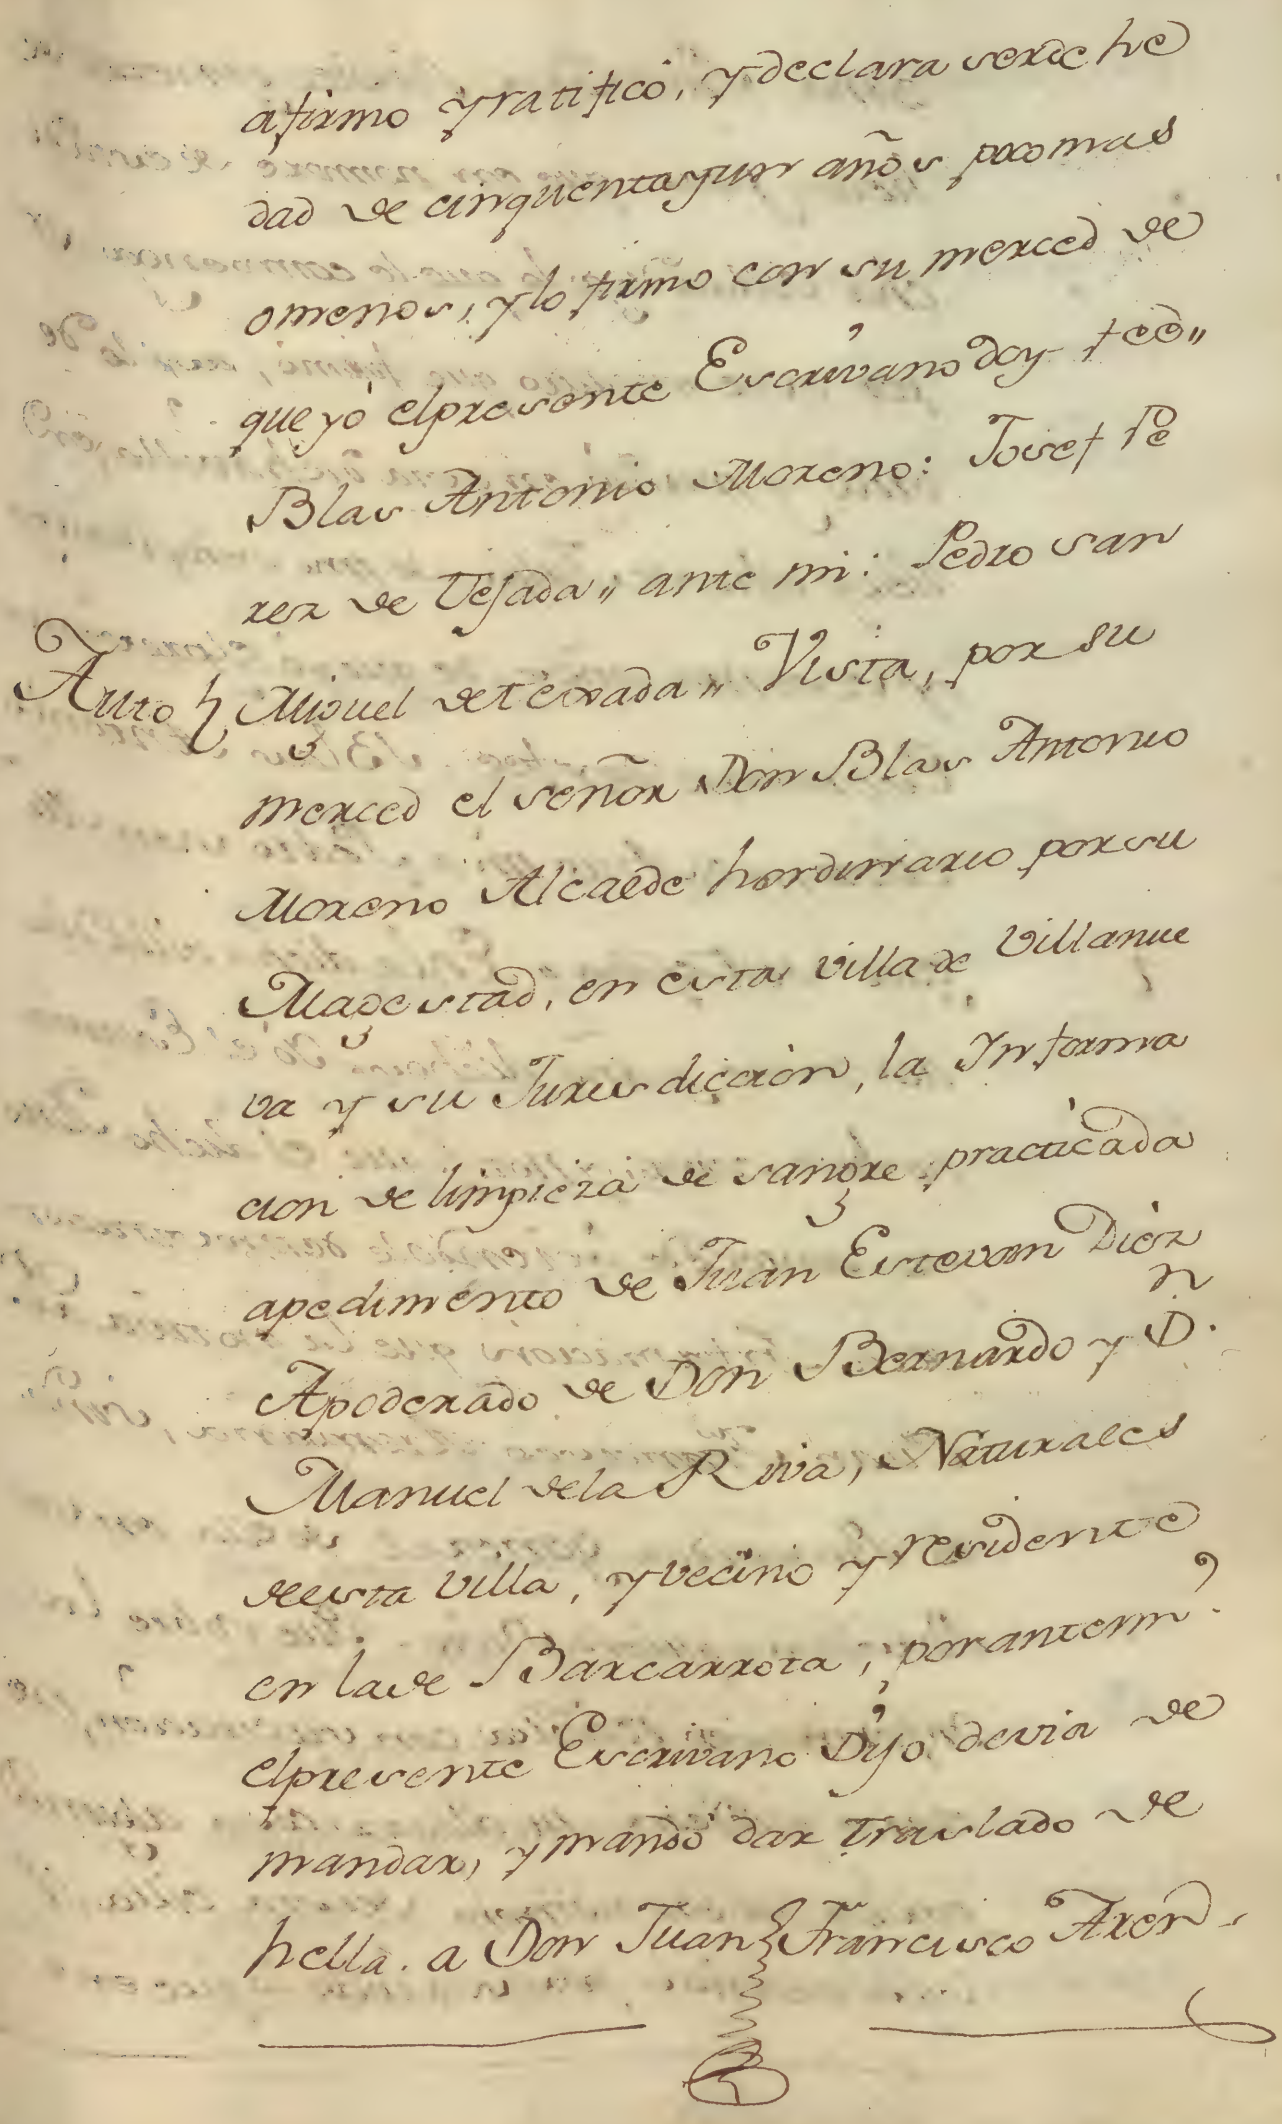 afirmo y ratificó, y declara ser de he
dad de cinquenta y un años poco mas
omenos, y lo firmo con su merced de
que yó el presente Escrivano doy feè„
Blas Antonio Moreno: Josef Pe
rez de Tejada„ ante mi: Pedro San
Auto } Miguel de texada„ Vista, por su
merced el señor Don Blas Antonio
Moreno Alcalde hordinario por su
Magestad, en esta villa de Villanue
va y su Jurisdiccion, la Informa
cion de limpieza de sangre practicada
apedimento de Juan Estevan Diez
Apoderado de Don Bernardo y D.n
Manuel de la Riva, Naturales
de esta villa, y vecino y residente
en la de Barcarrota, por antem.
el presente Escrivano Dijo devia de
mandar, y mandó dar traslado de
hella. a Don Juan Francisco Axen-